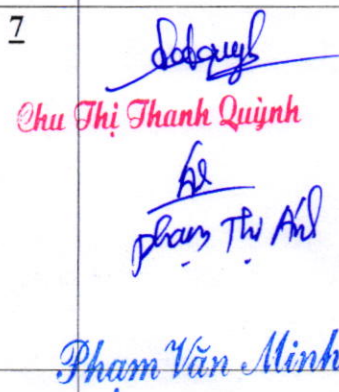 7
Chu Thị Thanh Quỳnh
Phạm Thị Ánh
Phạm Văn Minh